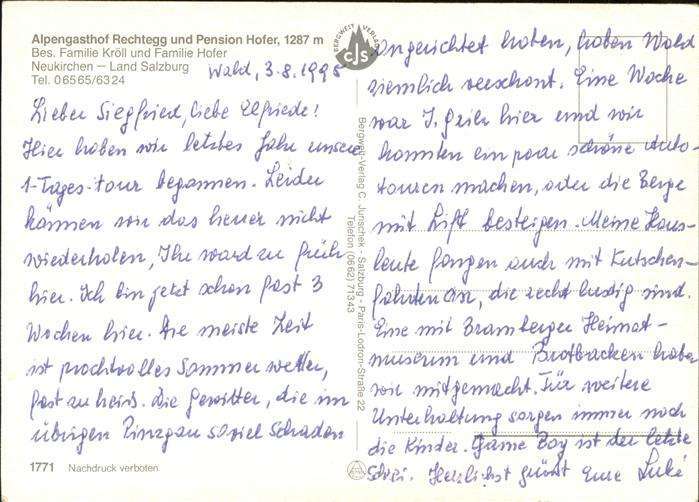 Alpengasthof Rechtegg und Pension Hofer, 1287 m
Bes. Familie Kröll und Familie Hofer
Neukirchen — Land Salzburg
Tel. 06565/6324
Wald, 3.8.1995
Lieber Siegfried, liebe Elfriede!
Hier haben wir letztes Jahr unsere
1-Tages-tour begonnen. Leider
können wir das heuer nicht
wiederholen, Ihr ward zu früh
hier. Ich bin jetzt schon fast 3
Wochen hier. Die meiste Zeit
ist prachtvolles Sommerwetter,
fast zu heiß. Die Gewitter, die im
übrigen Pinzgau soviel Schaden
1771 Nachdruck verboten
BERGWELT VERLAG
cJs
Bergwelt-Verlag C. Jurischek - Salzburg - Paris-Lodron-Straße 22
Telefon (0662) 71343
angerichtet haben, haben Wald
ziemlich verschont. Eine Woche
war hier und wir
konnten ein paar schöne Auto-
touren machen, oder die Berge
mit Lift besteigen. Meine Haus-
leute fangen auch mit Kutschen-
fahrten an, die recht lustig sind.
Eine mit Bramberger Heimat-
museum und Brotbacken haben
wir mitgemacht. Für weitere
Unterhaltung sorgen immer noch
die Kinder. Game Boy ist der letzte
Herzlichst grüßt Eure